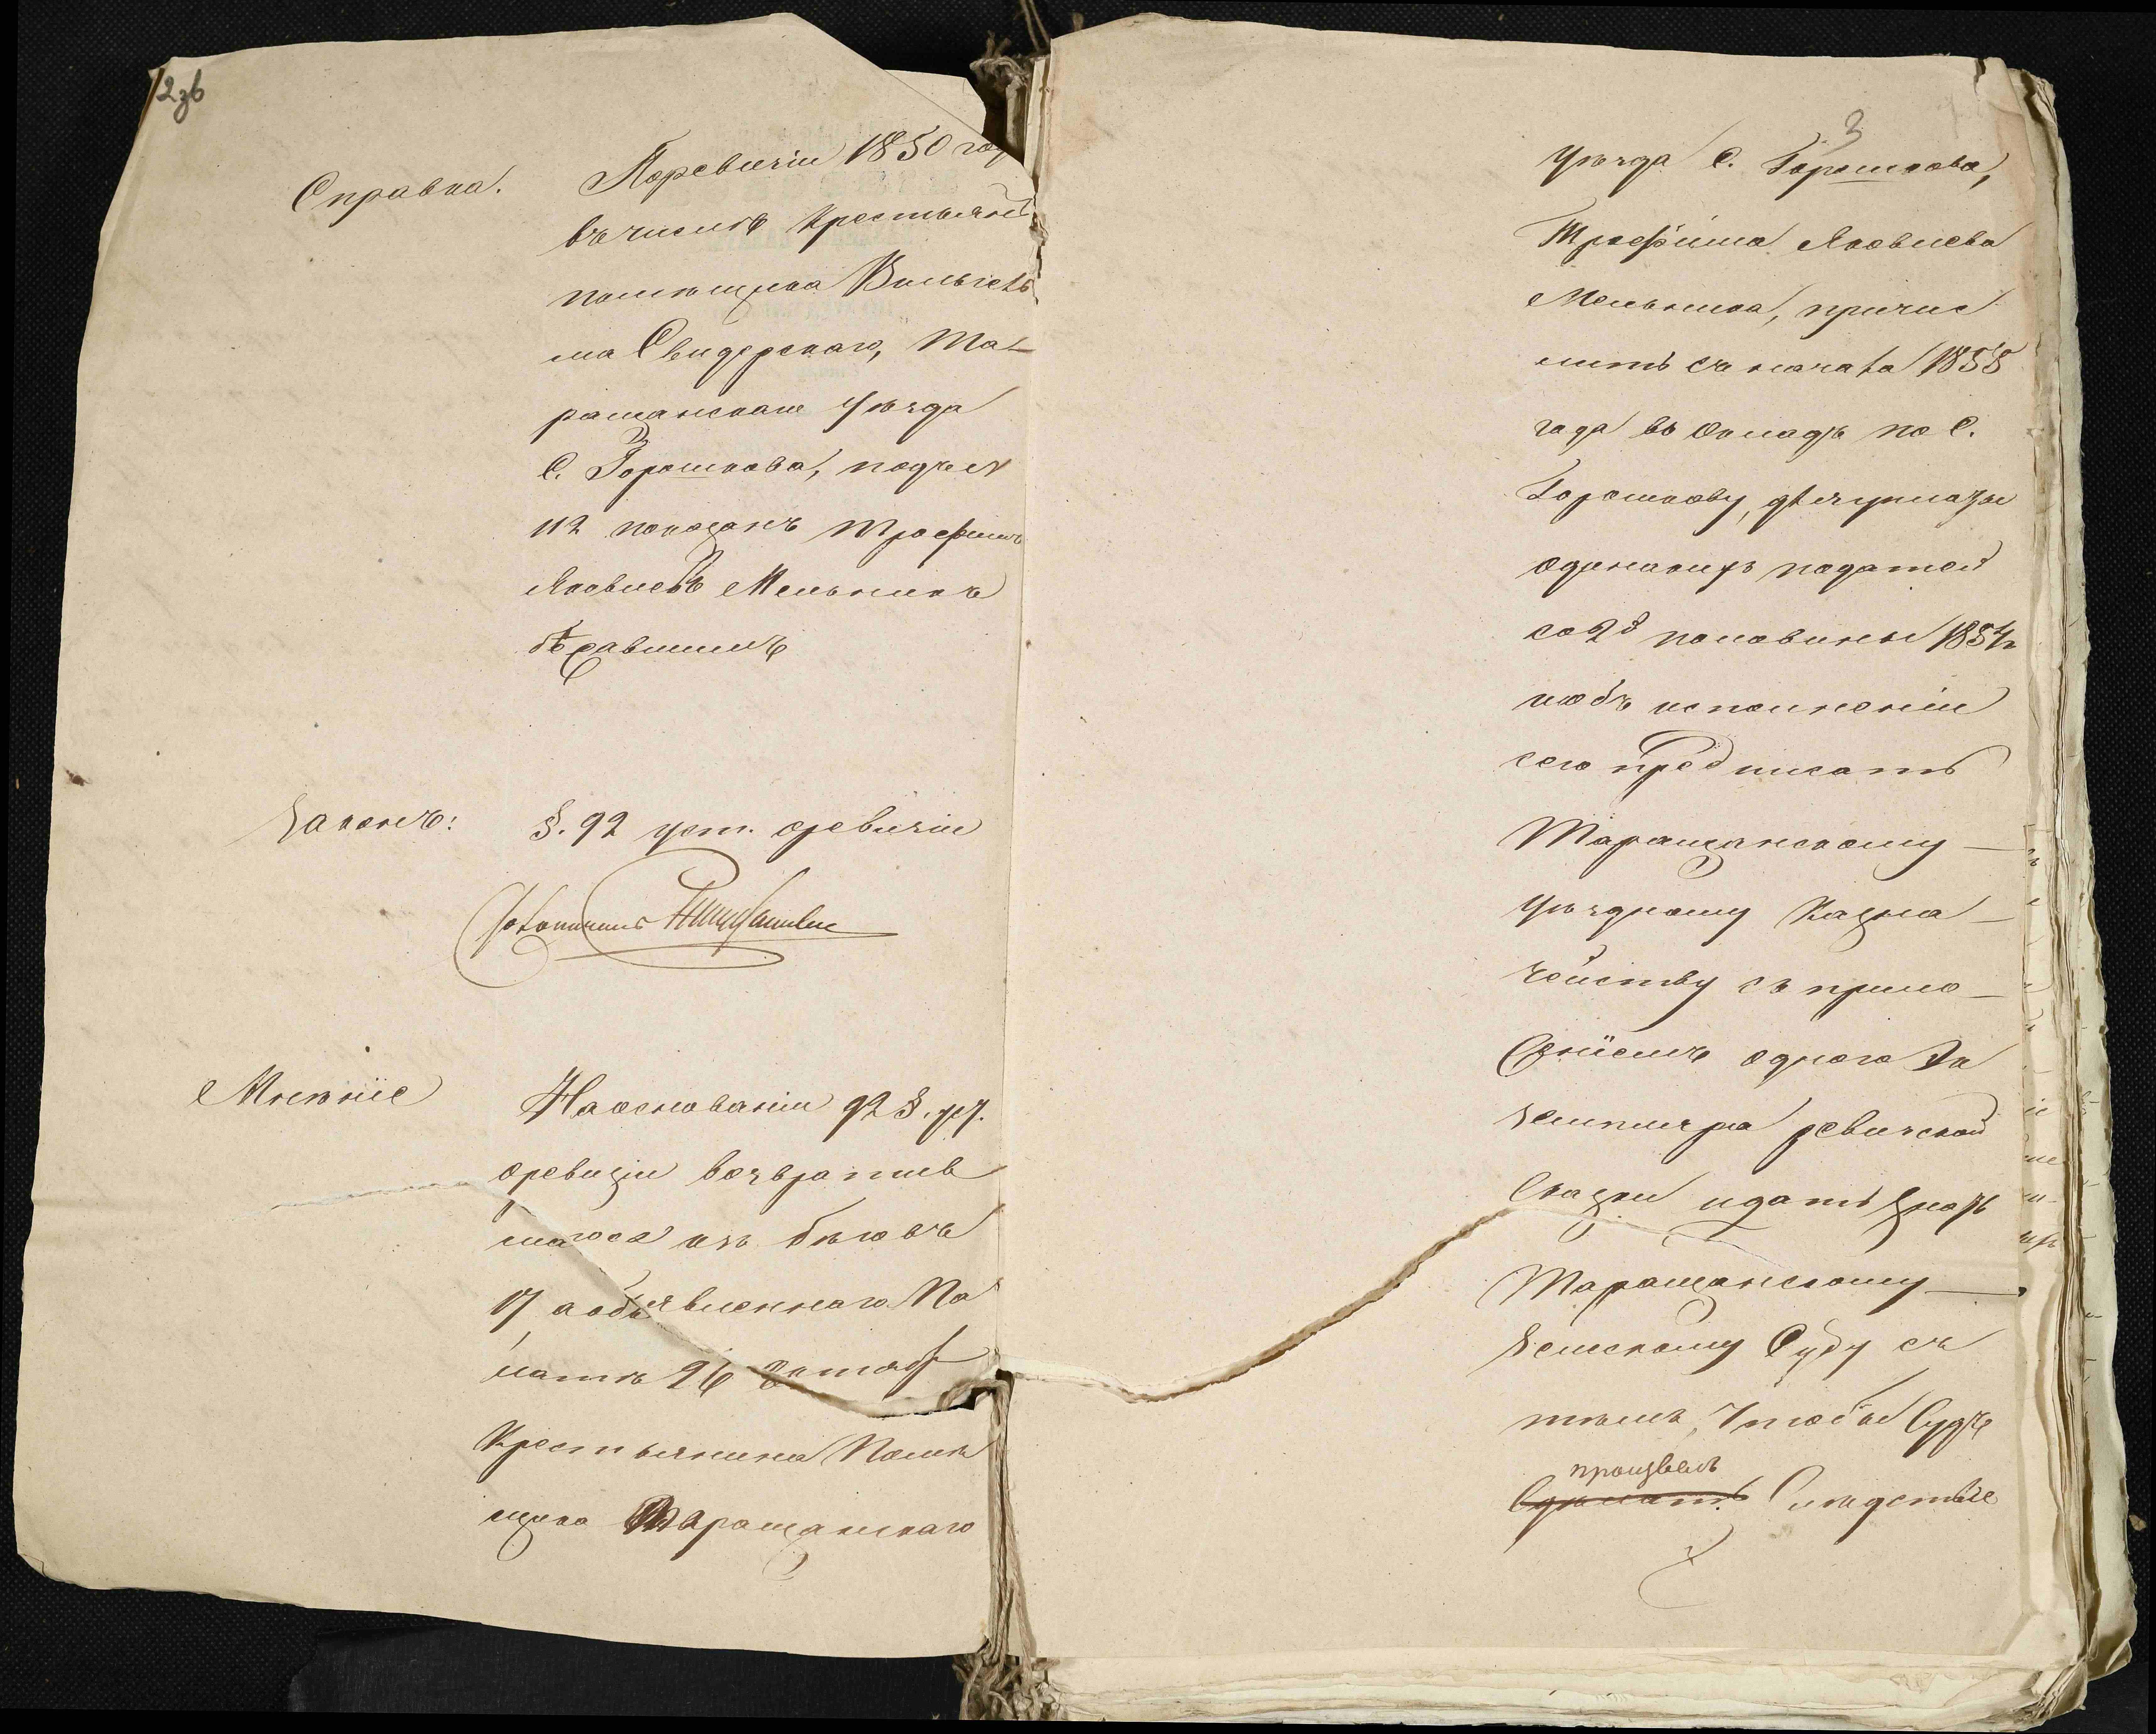 2зв
Справка.
По ревизіи 1850 го
въ числѣ крестьянъ
помѣщика Вильгель
ма Свидерскаго, Та-
ращанскаго уѣзда
С. Горошкова, подъ №
112 показанъ Трофимъ
Яковлевъ Мельникъ
бѣжавшимъ
Законъ:
§. 92 уст. о ревизіи
Мнѣніе
На основаніи 92 §. уст.
о ревизіи возвратив
шагося изъ бѣговъ
17 а объявленнаго Па
латѣ 26 Октябр
Крестьянина Помѣ
щика Таращанскаго
3
уѣзда С. Горошкова,
Трофима Яковлева
Мельника, причис
лить съ начала 1855
года въ окладъ по С.
Горошкову, для уплаты
одинакихъ податей
со 2й половины 1854 г
и объ исполненіи
сего предписать
Таращанскому
уѣздному Казна-
чейству съ прило-
женіемъ одного эк
земпляра ревизской
Сказки и дать знать
Таращанскому
Земскому Суду съ
тѣмъ, чтобы Судъ
произвелъ
сдѣлалъ Слѣдствіе